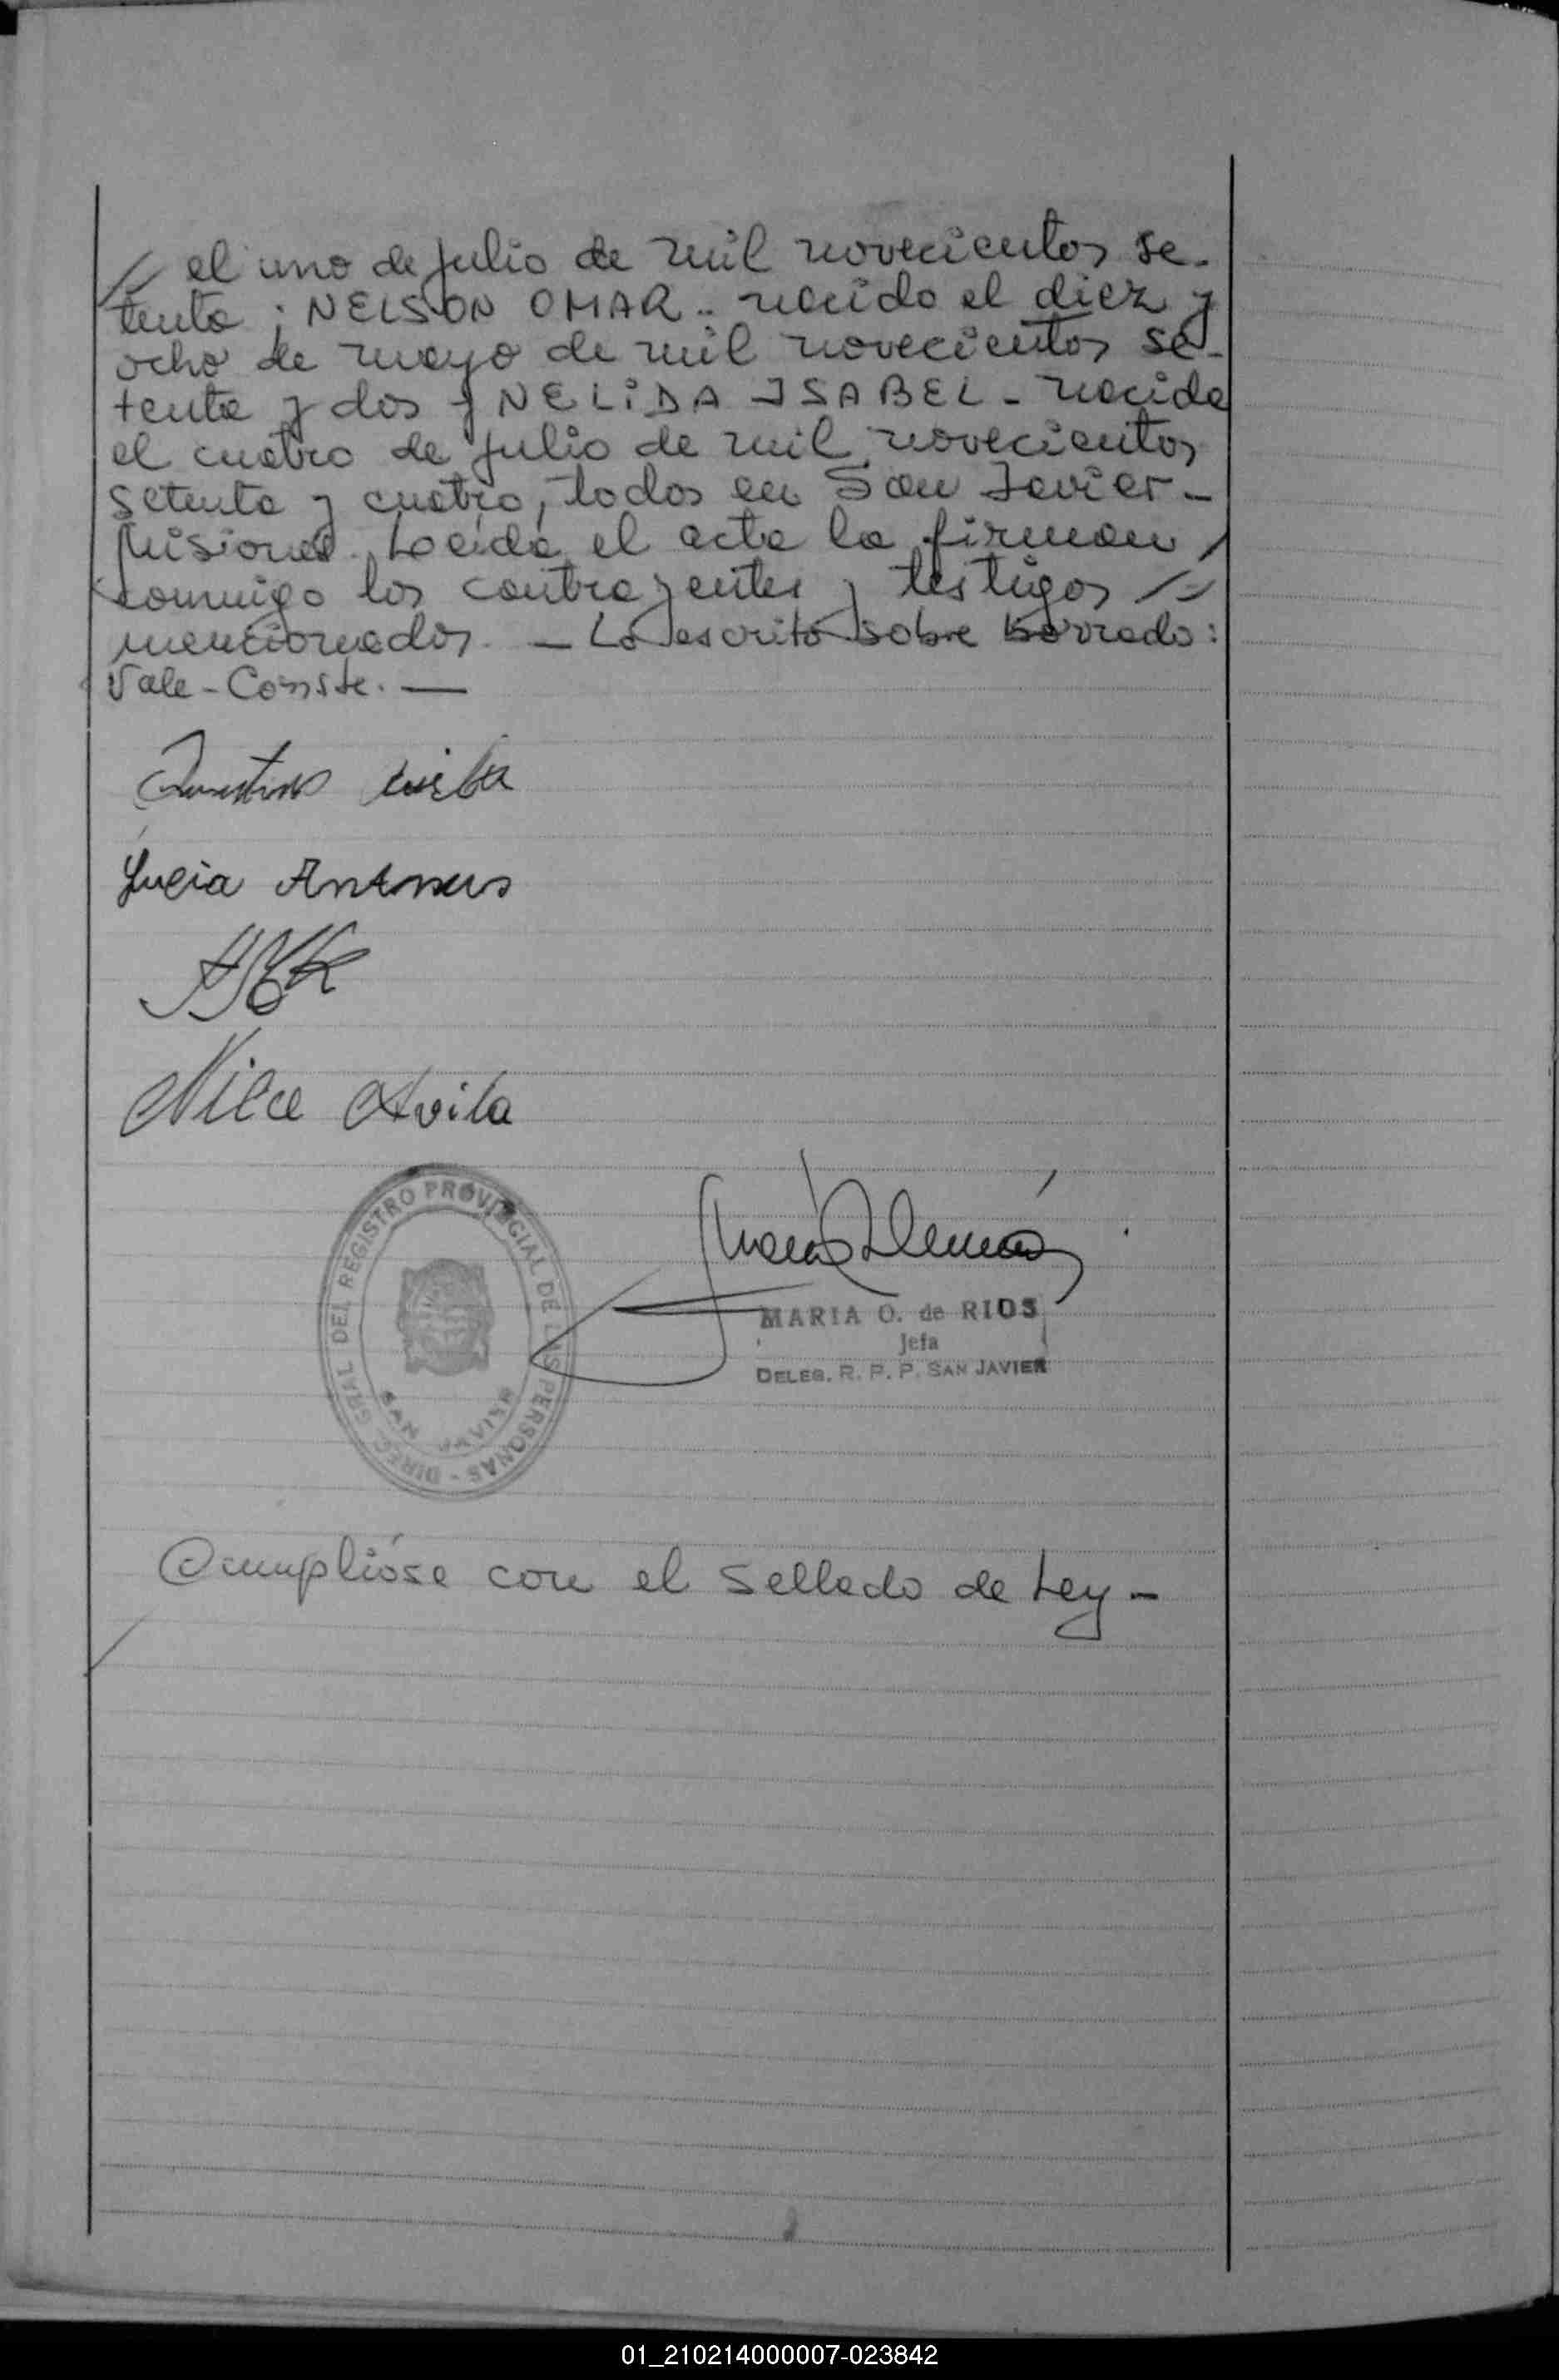 // el uno de Julio de mil novecientos se-
tenta ; NELSON OMAR.. nacido el diez y
ocho de mayo de mil novecientos se-
tenta y dos y NELIDA ISABEL - nacida
el cuatro de Julio de mil novecientos
setenta y cuatro, todos en San Javier -
Misiones. Leída el acta la firman /
conmigo los contrayentes y testigos //
mencionados. — Lo escrito sobre borrado:
Vale - Conste. —
Lucia Antunes
Nilce Avila
DIREC. GRAL DEL REGISTRO PROVINCIAL DE LAS PERSONAS -
SAN JAVIER
MARIA O. de RIOS
Jefa
DELEG. R. P. P. SAN JAVIER
Cumplióse con el sellado de Ley -
01_210214000007-023842